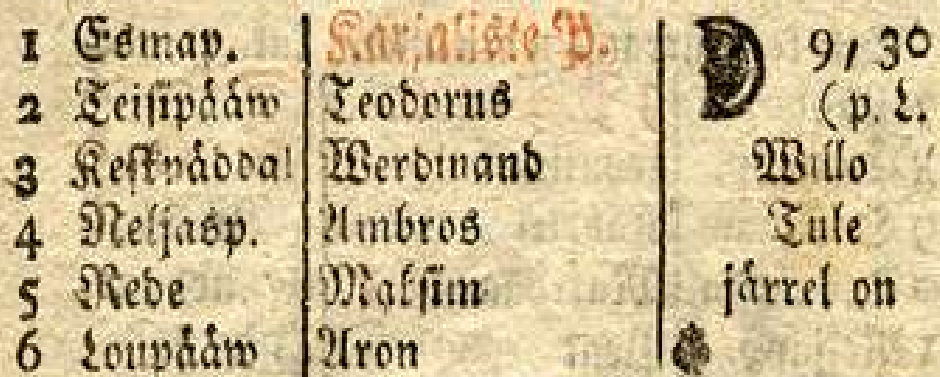 1 Esmap. Karjaliste P. 9, 30
2 Teisipääw Teodorus (p. L.
3 Kesknäddal Werdinand Willo
4 Neljasp. Ambros Tule
5 Rede Maksim järrel on
6 Loupääw Aron